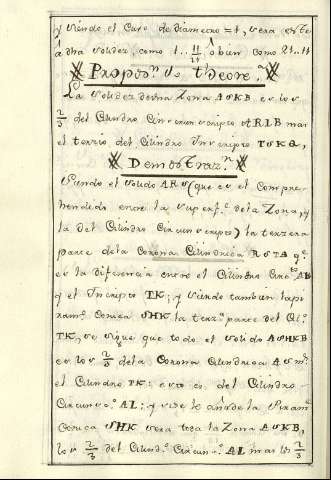 y siendo el Cuvo de diametro = 1, sera este
à dha solidez, como 1..11/21 ò bien como 21..11
Propos.n de theore.a
La Solidez de una Zona ASKB es los
2/3 del Cilindro Circunscripto ARLB mas
el tercio del Cilindro Inscripto TSKQ,
Demostraz.n
Siendo el solido ARS (que es el compre-
hendido entre la superf.e de la Zona, y
la del Cilindro Circunscripto) la terzera
parte de la Corona Cilindrica RSTA q.e
es la diferencia entre el Cilindro Circ.to AL
y el Inscripto TK; y siendo tambien la pi-
ram.e Conica SHK la terz.a parte del Ci.o
TK, se sigue que todo el solido ASHKB
es los 2/3 de la Corona Cilindrica AS m.s
el Cilindro TK: esto es del Cilindro
Circuns.o AL: y si se le añade la Piram.e
Conica SHK sera toda la Zona ASKB,
los 2/3 del Cilind.o Circuns.o AL mas los 2/3